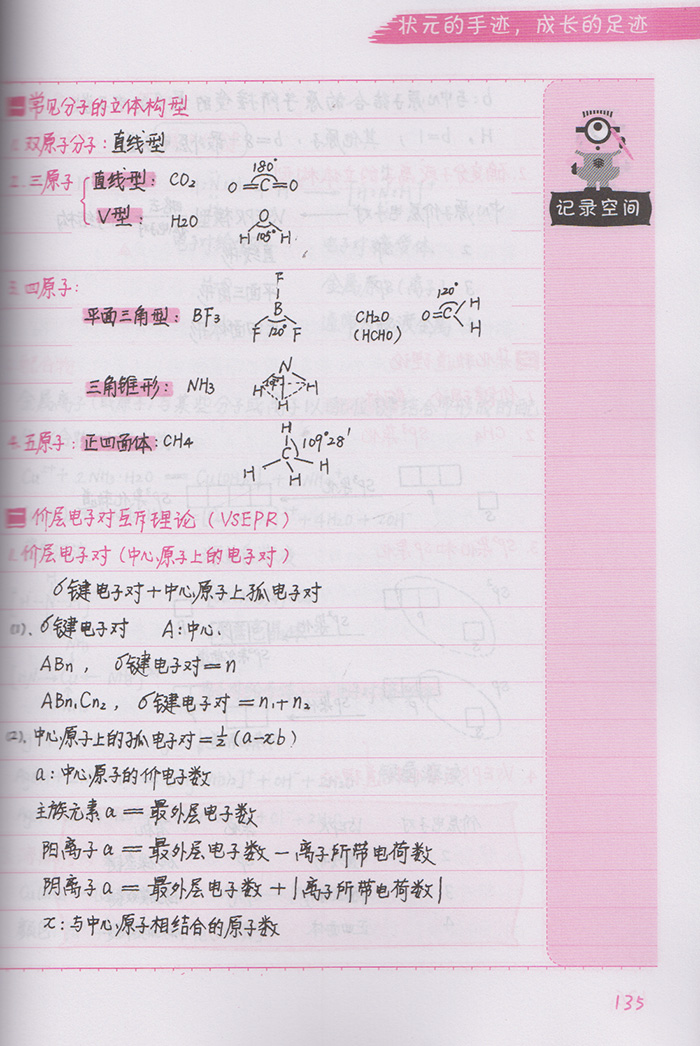 状元的手迹，成长的足迹
一 常见分子的立体构型
1. 双原子分子：直线型
2. 三原子 直线型： CO2 180° O=C=O
V型： H2O O H 105° H
3. 四原子：
平面三角型： BF3 F B F 120° F CH2O (HCHO) 120° O=C H H
三角锥形： NH3 N H H H
4. 五原子：正四面体：CH4 H C H H H 109°28′
二 价层电子对互斥理论（VSEPR）
1. 价层电子对（中心原子上的电子对）
σ键电子对+中心原子上孤电子对
(1)、σ键电子对 A：中心.
ABn， σ键电子对=n
ABn1Cn2， σ键电子对=n1+n2
(2)、中心原子上的孤电子对=½（a-xb）
a：中心原子的价电子数
主族元素a=最外层电子数
阳离子a=最外层电子数-离子所带电荷数
阴离子a=最外层电子数+|离子所带电荷数|
x：与中心原子相结合的原子数
记录空间
135